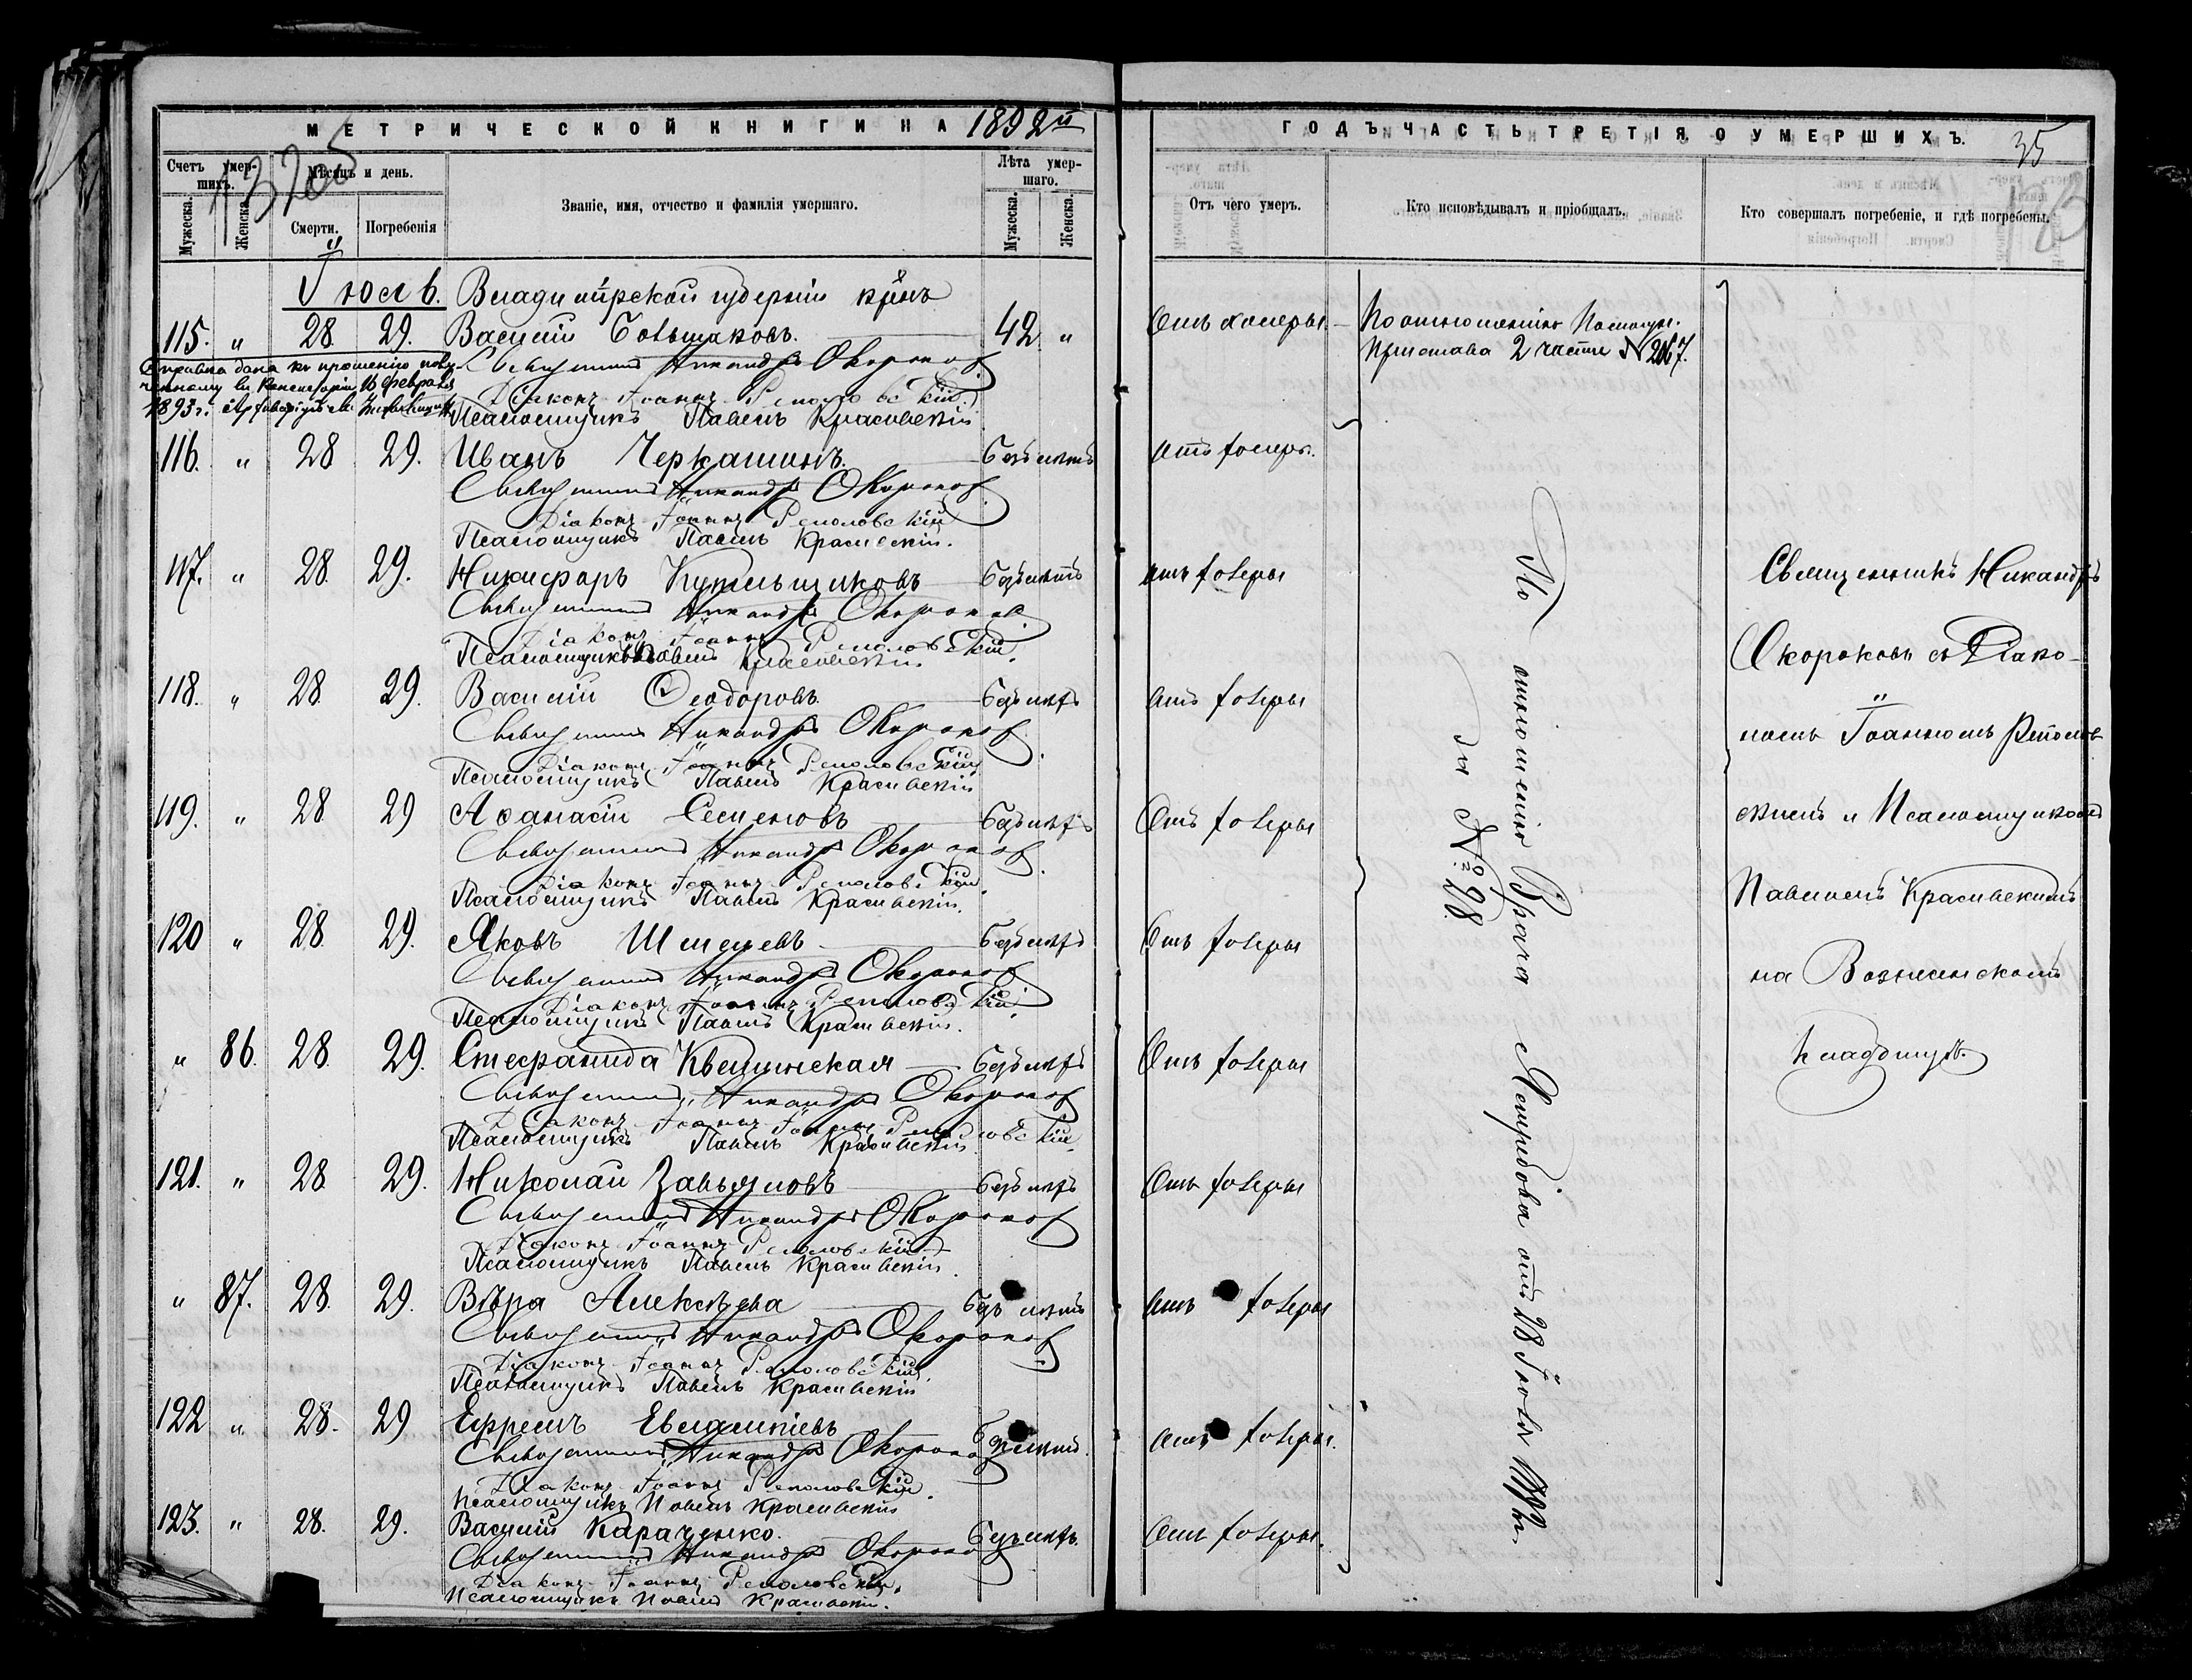 МЕТРИЧЕСКОЙ КНИГИ НА 1892й
ГОДЪ ЧАСТЬ ТРЕТІЯ О УМЕРШИХЪ.
35
Счетъ умершихъ.
Мѣсяцъ и день.
Званіе, имя, отчество и фамилія умершаго.
Лѣта умершаго.
Мужеска.
Женска.
Смерти.
Погребенія
Мужеска.
Женска.
Отъ чего умеръ.
Кто исповѣдывалъ и пріобщалъ.
Кто совершалъ погребеніе, и гдѣ погребены.
Іюль. Владимірской губерніи крѣнъ
115. " 28. 29. Василій Большаковъ. 42 " Отъ холеры. По отношенію Полиц.
Пристава 2 части № 2067.
Справка дана по прошенію
въ Консисторію 16 февраля
1893 г.
Священникъ Никандръ Окороков
Діаконъ Іоаннъ Реполовскій
Псаломщикъ Павелъ Красивскій
116. " 28 29. Иванъ Черкашинъ. Безъ лѣтъ отъ холеры.
Священникъ Никандръ Окороков
Діаконъ Іоаннъ Реполовскій
Псаломщикъ Павелъ Красивскій.
117. " 28. 29. Никифоръ Кутельщиковъ Безъ лѣтъ отъ холеры
Священникъ Никандръ Окороков
Діаконъ Іоаннъ Реполовскій
Псаломщикъ Павелъ Красивскій
118. " 28. 29. Василій Ѳеодоровъ Безъ лѣтъ отъ холеры
Священникъ Никандръ Окороков
Діаконъ Іоаннъ Реполовскій
Псаломщикъ Павелъ Красивскій
119. " 28 29 Аѳанасій Семеновъ Безъ лѣтъ Отъ холеры
Священникъ Никандръ Окороков
Діаконъ Іоаннъ Реполовскій
Псаломщикъ Павелъ Красивскій.
120 " 28. 29. Яковъ Безъ лѣтъ Отъ холеры
Священникъ Никандръ Окороков
Діаконъ Іоаннъ Реполовскій
Псаломщикъ Павелъ Красивскій.
" 86. 28. 29. Стефанида Квешинская Безъ лѣтъ Отъ холеры
Священникъ Никандръ Окороков
Діаконъ Іоаннъ Реполовскій
Псаломщикъ Павелъ Красивскій
121. " 28. 29. Николай Завьяловъ Безъ лѣтъ Отъ холеры
Священникъ Никандръ Окороков
Діаконъ Іоаннъ Реполовскій
Псаломщикъ Павелъ Красивскій
" 87. 28. 29. Вѣра Алексѣева Безъ лѣтъ Отъ холеры
Священникъ Никандръ Окороков
Діаконъ Іоаннъ Реполовскій
Псаломщикъ Павелъ Красивскій
122 " 28. 29 Ефремъ Евлампіевъ Безъ лѣтъ. отъ холеры.
Священникъ Никандръ Окороков
Діаконъ Іоаннъ Реполовскій
Псаломщикъ Павелъ Красивскій
123. " 28. 29. Василій Караченко. Безъ лѣтъ. Отъ холеры.
Священникъ Никандръ Окороков
Діаконъ Іоаннъ Реполовскій
Псаломщикъ Павелъ Красивскій.
По отношенію Врача Ястребова отъ 28 Іюля 1892 г.
за № 28.
Священникъ Никандръ
Окороковъ съ Діако-
номъ Іоанномъ Реполов
скимъ и Псаломщикомъ
Павломъ Красивскимъ
на Вознесенскомъ
кладбищѣ.